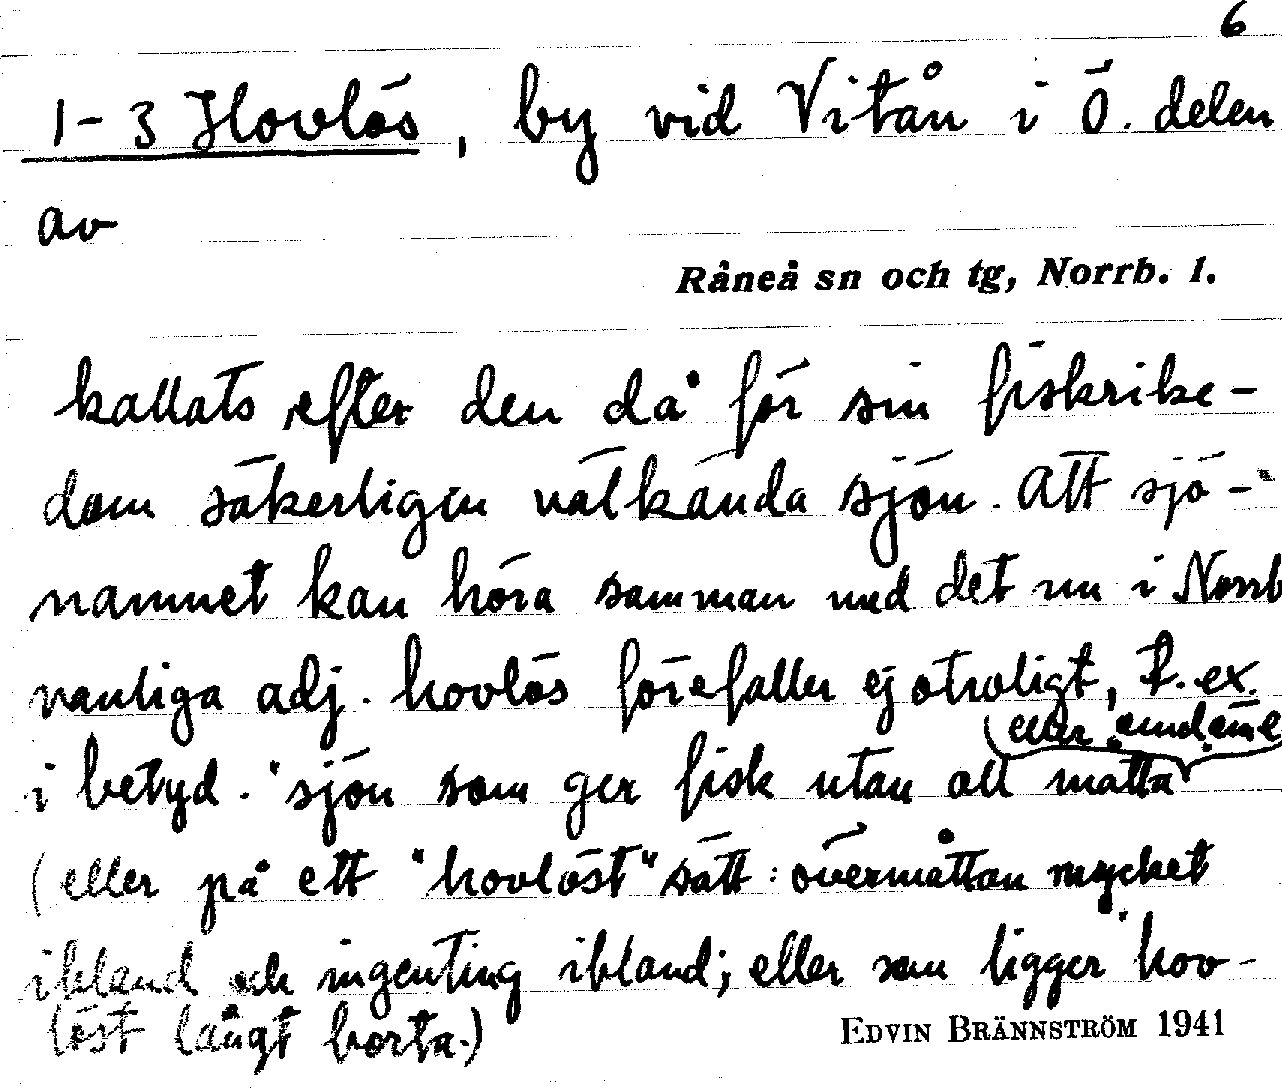 6
1-3 Hovlös, by vid Vitån i Ö. delen
av
Råneå sn och tg, Norrb. l.
kallats efter den då för sin fiskrike-
dom säkerligen välkända sjön. Att sjö-
namnet kan höra samman med det nu i Norrb
vanliga adj. hovlös förefaller ej otroligt, t. ex.
(eller
i betyd. "sjön som ger fisk utan all måtta"
(eller på ett "hovlöst" sätt: övermåttan mycket
ibland och ingenting ibland; eller som ligger "hov-
löst långt borta.)
EDVIN BRÄNNSTRÖM 1941